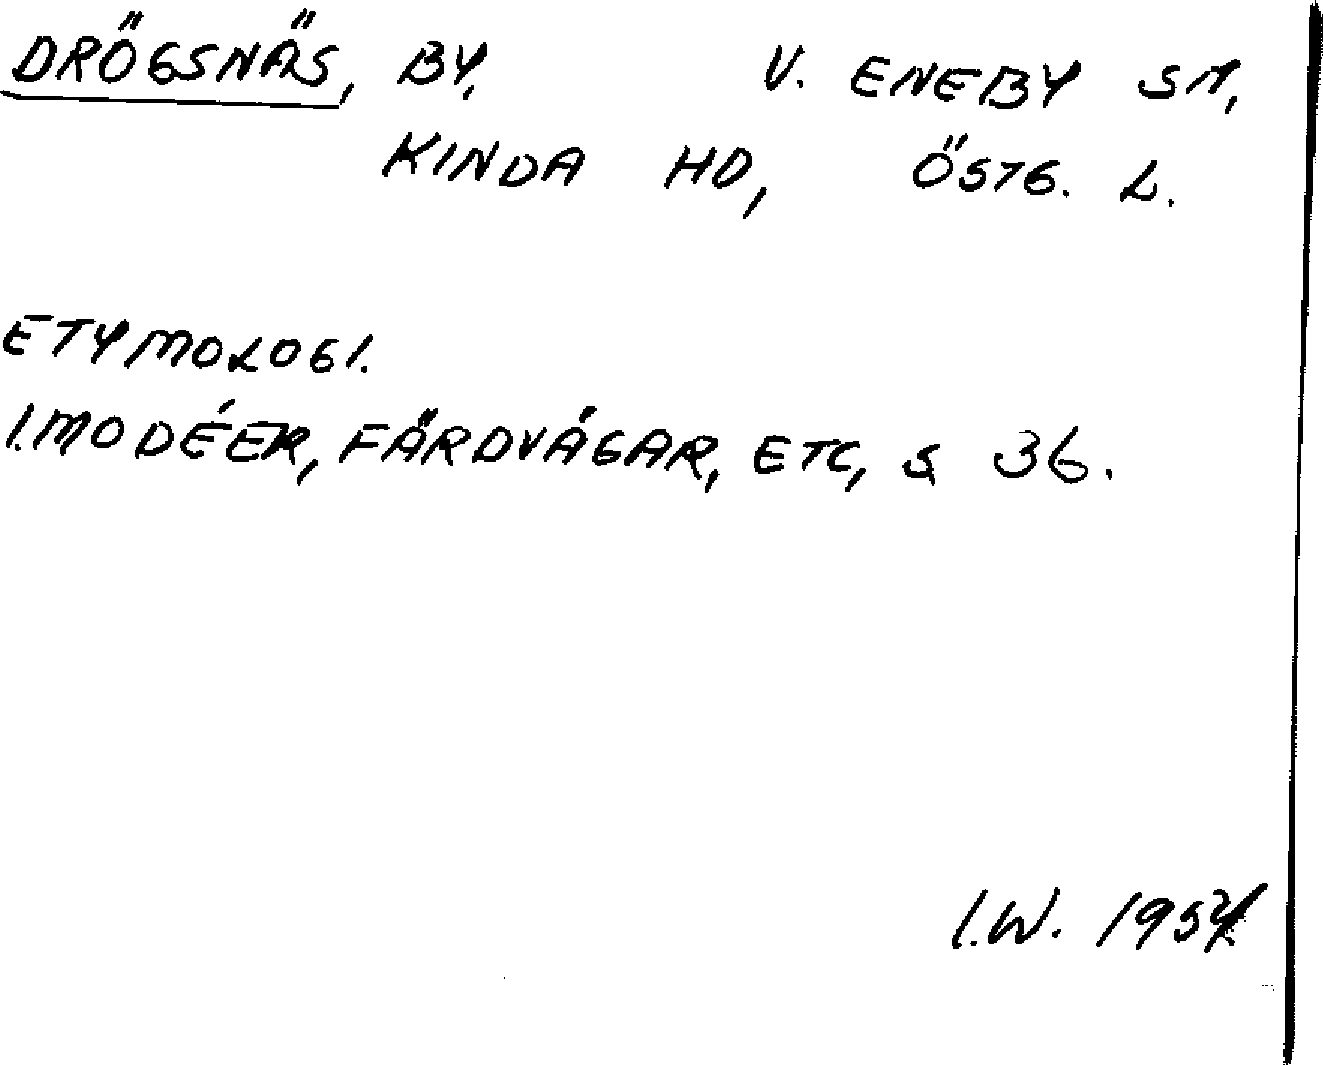 DRÖGSNÄS, BY, V. ENEBY SN,
KINDA HD, ÖSTG. L.
ETYMOLOGI.
I. MODÉER, FÄRDVÄGAR, ETC, S 36.
I.W.